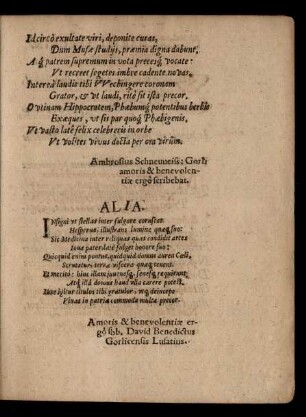 Idcircò exultate viri, deponite curas,
Dum Musæ studijs, præmia digna dabunt,
A q́; patrem supremum in vota precesq́; vocate
Vt recreet segetes imbre cadente novas.
Intereà laudis tibi VVechingere coronam
Grator, & vt laudi, ritè sit ista precor.
O vtinam Hippocratem, Phæbumq́; potentibus herbis
Exæques, vt sis par quoq́; Phæbigenis,
Vt vasto latè felix celebreris in orbe
Vt volites vivus docta per ora virûm.
Ambrosius Schneuweis: Gorl:
amoris & benevolen-
tiæ ergò scribebat.
ALIA.
INsigni vt stellas inter fulgore coruscat
Hesperus, illustrans lumine quæq́; suo:
Sic Medicina inter reliquas quas condidit artes
Iova pater, latè fulget honore suo:
Quicquid enim pontus, quidquid domus aurea Cœli,
Scrutatur: terræ viscera quæq́; tenent.
Et meritò: hinc illam juvenesq́; senesq́; requirunt,
Atq́; istâ domus haud ulla carere potest.
Iure igitur titulos tibi gratulor, atq́; deinceps
Vivas in patriæ commoda multa precor.
Amoris & benevolentiæ er-
gò scrib. David Benedictus
Gorlicensis Lusatius.